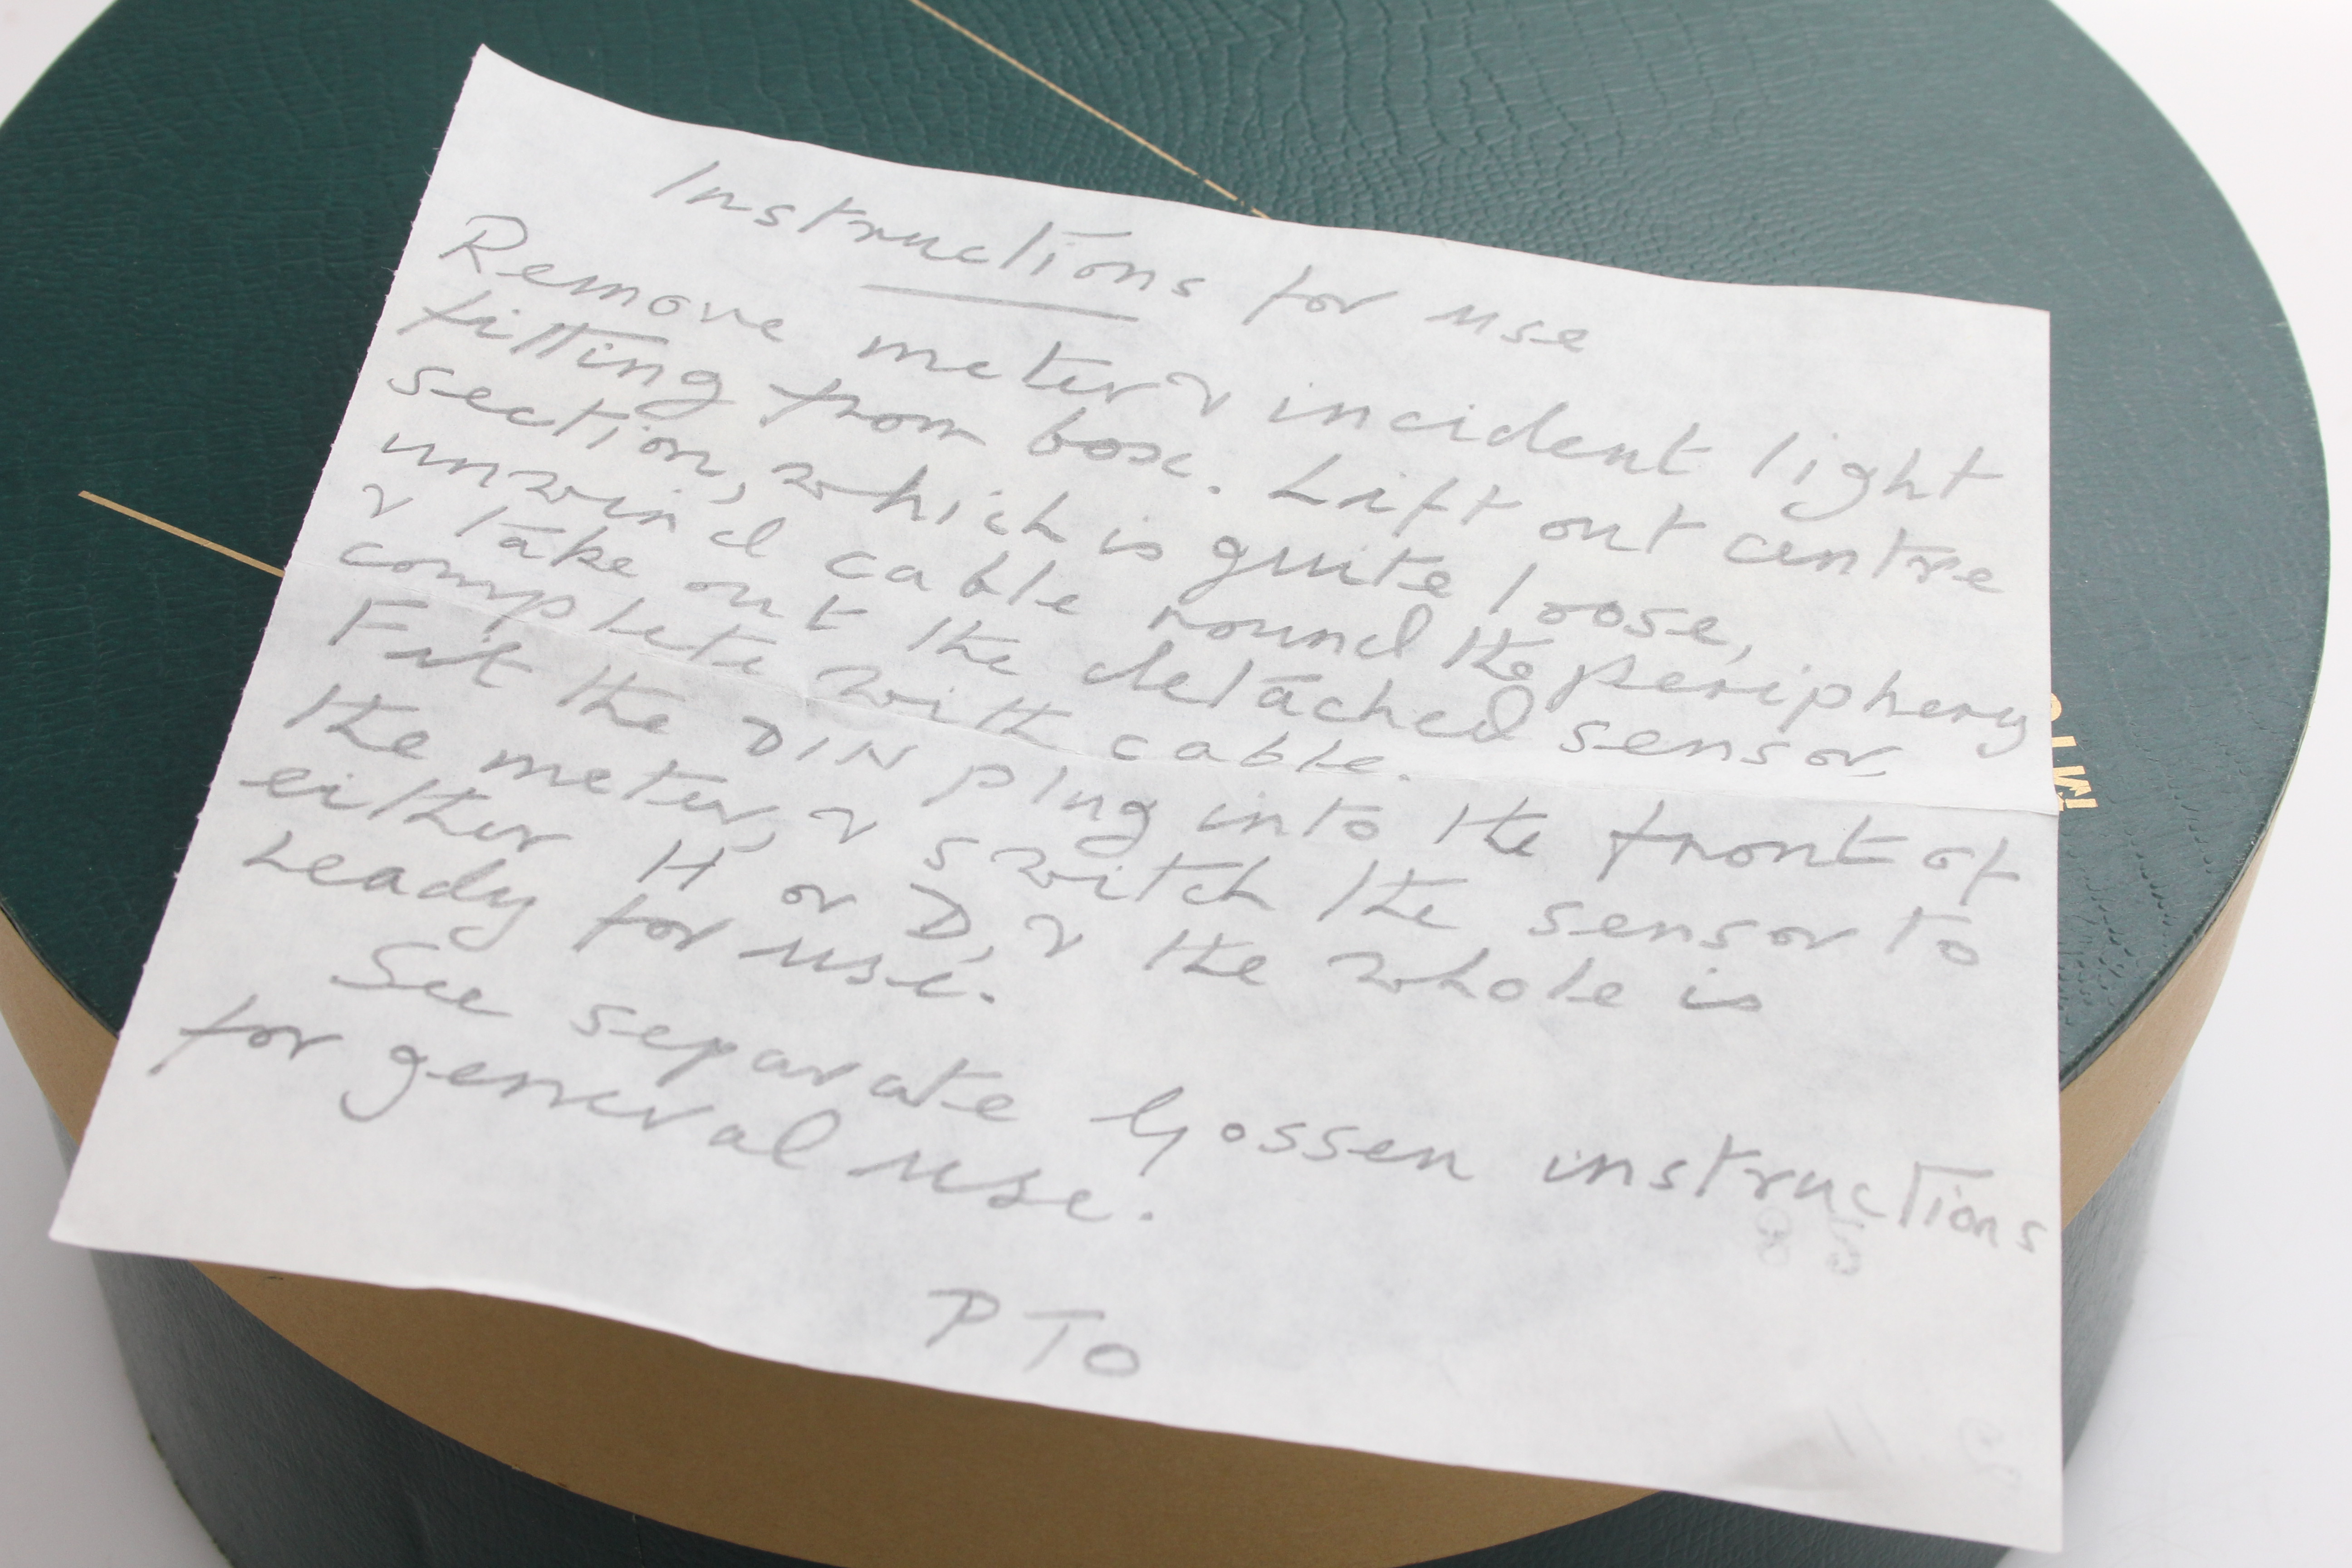 Instructions for use
Remove meter & incident light
fitting from box. Lift out centre
section, which is quite loose,
unwind cable round the periphery
& take out the detached sensor,
complete with cable.
Fit the DIN plug into the front of
the meter, & switch the sensor to
either H or D, & the whole is
ready for use.
See separate Gossen instructions
for general use.
PTO